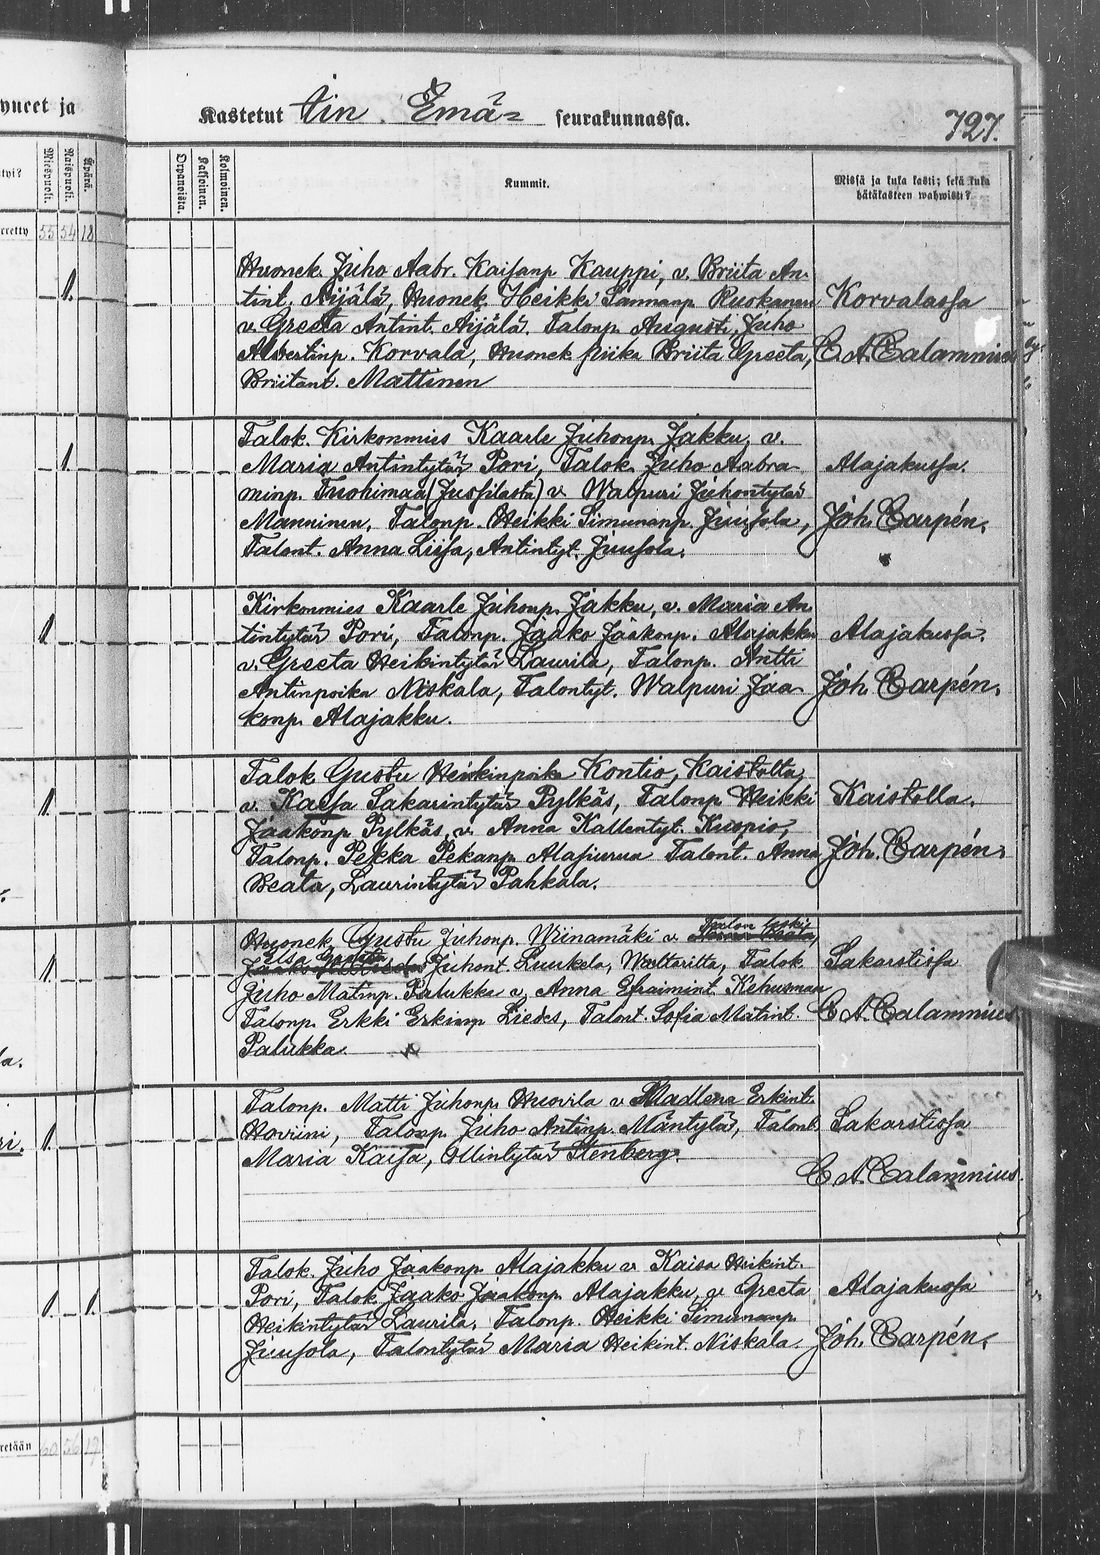 yneet ja
Kastetut Iin Emä= seurakunnassa.
727.
Miespuoli.
Waispuoli.
Äpärä.
Orpanoista.
Kaksoinen.
Kolmoinen.
Kummit.
Missä ja kuka kasti; sekä kuka
hätäkasteen wahwisti?
rretty 55 54 18
Huonek. Juho Aabr. Kaisanp. Kauppi, v. Briita An-
tint. Äijälä, Huonek. Heikki Sannanp. Ruokanen
v. Greeta Antint. Äijälä. Talonp. Augusti Juho
Albertinp. Korvala, Huonek. piika Briita Greeta,
Briitant. Mattinen
Korvalassa
C A Calamnius
1.
Talok. Kirkonmies Kaarle Juhonp. Jakku, v.
Maria Antintytär Pori, Talok. Juho Aabra-
minp. Tuohimaa (Jussilasta) v. Walpuri Juhontytär
Manninen, Talonp. Heikki Simunanp. Juusola,
Talont. Anna Liisa, Antintyt. Juusola.
Alajakussa.
Joh. Carpén.
1.
Kirkonmies Kaarle Juhonp. Jakku, v. Maria An-
tintytär Pori, Talonp. Jaako Jaakonp. Alajakku
v. Greeta Heikintytär Laurila, Talonp. Antti
Antinpoika Niskala, Talontyt. Walpuri Jaa-
konp. Alajakku.
Alajakussa.
Joh. Carpén.
1.
Talok. Gustu Heikinpoika Kontio, Kaistolta,
v. Kaisa Sakarintytär Pylkäs, Talonp. Heikki
Jaakonp. Pylkäs, v. Anna Kallentyt. Kuopio,
Talonp. Pekka Pekanp. Alasiurua Talont. Anna
Beata, Laurintytär Pahkala.
Kaistolla.
Joh. Carpén.
1.
Huonek. Gustu Juhonp. Wiinamäki v. Talon leski
Elsa Greeta Juhont. Luukela, Waltarilta, Talok.
Juho Matinp. Palukka v. Anna Efraimint. Kehusmaa
Talonp. Erkki Erkinp. Liedes, Talont. Sofia Matint.
Palukka.
Sakarstissa
C A. Calamnius
1.
Talonp. Matti Juhonp. Huovila v. Madlena Erkint.
Hoviini, Talonp. Juho Antinp. Mäntylä, Talont.
Maria Kaisa, Ollintytär Stenberg.
Sakarstissa
C A. Calamnius.
1 1
Talok. Juho Jaakonp. Alajakku v. Kaisa Heikint.
Pori, Talok. Jaako Jaakonp. Alajakku, v. Greeta
Heikintytär Laurila, Talonp. Heikki Simunanp.
Juusola, Talontytär Maria Heikint. Niskala.
Alajakussa
Joh. Carpén.
retään 60 56 19